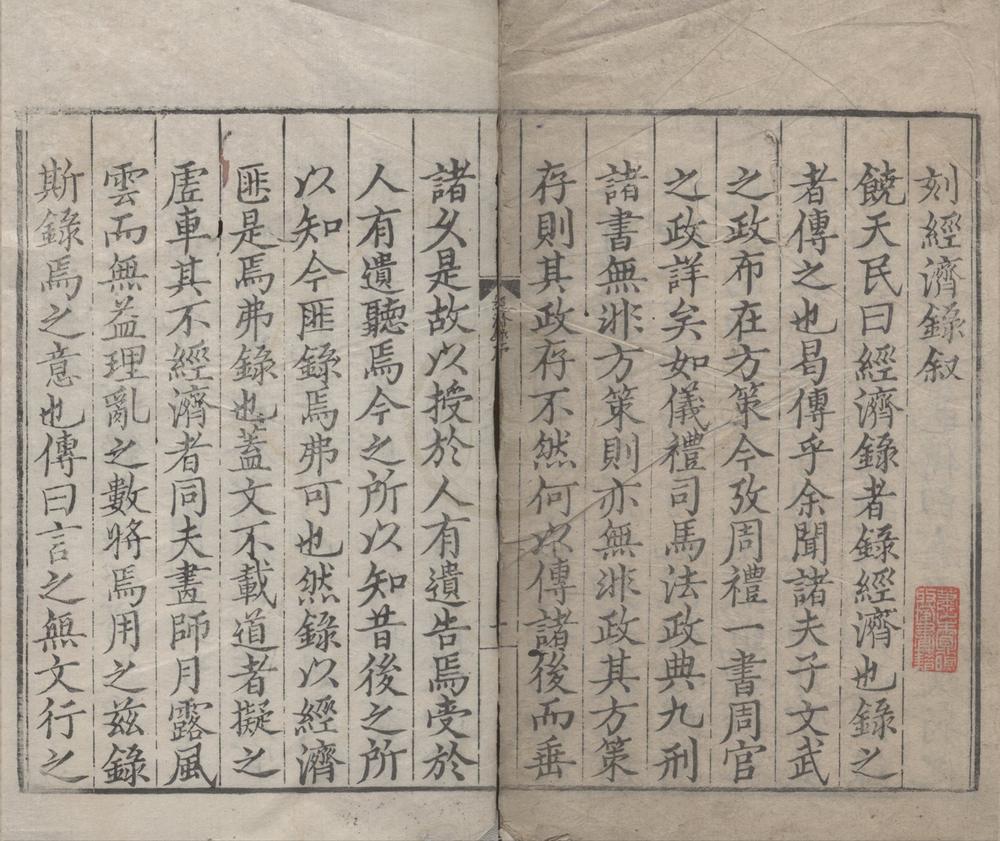 刻經濟錄叙
饒天民曰經濟錄者錄經濟也錄之
者傳之也曷傳乎余聞諸夫子文武
之政布在方策今攷周禮一書周官
之政詳矣如儀禮司馬法政典九刑
諸書無非方策則亦無非政其方策
存則其政存不然何以傳諸後而垂
諸久是故以授於人有遺告焉受於
人有遺聽焉今之所以知昔後之所
以知今匪錄焉弗可也然錄以經濟
匪是焉弗錄也蓋文不載道者擬之
虛車其不經濟者同夫畫師月露風
雲而無益理亂之數將焉用之茲錄
斯錄焉之意也傳曰言之無文行之